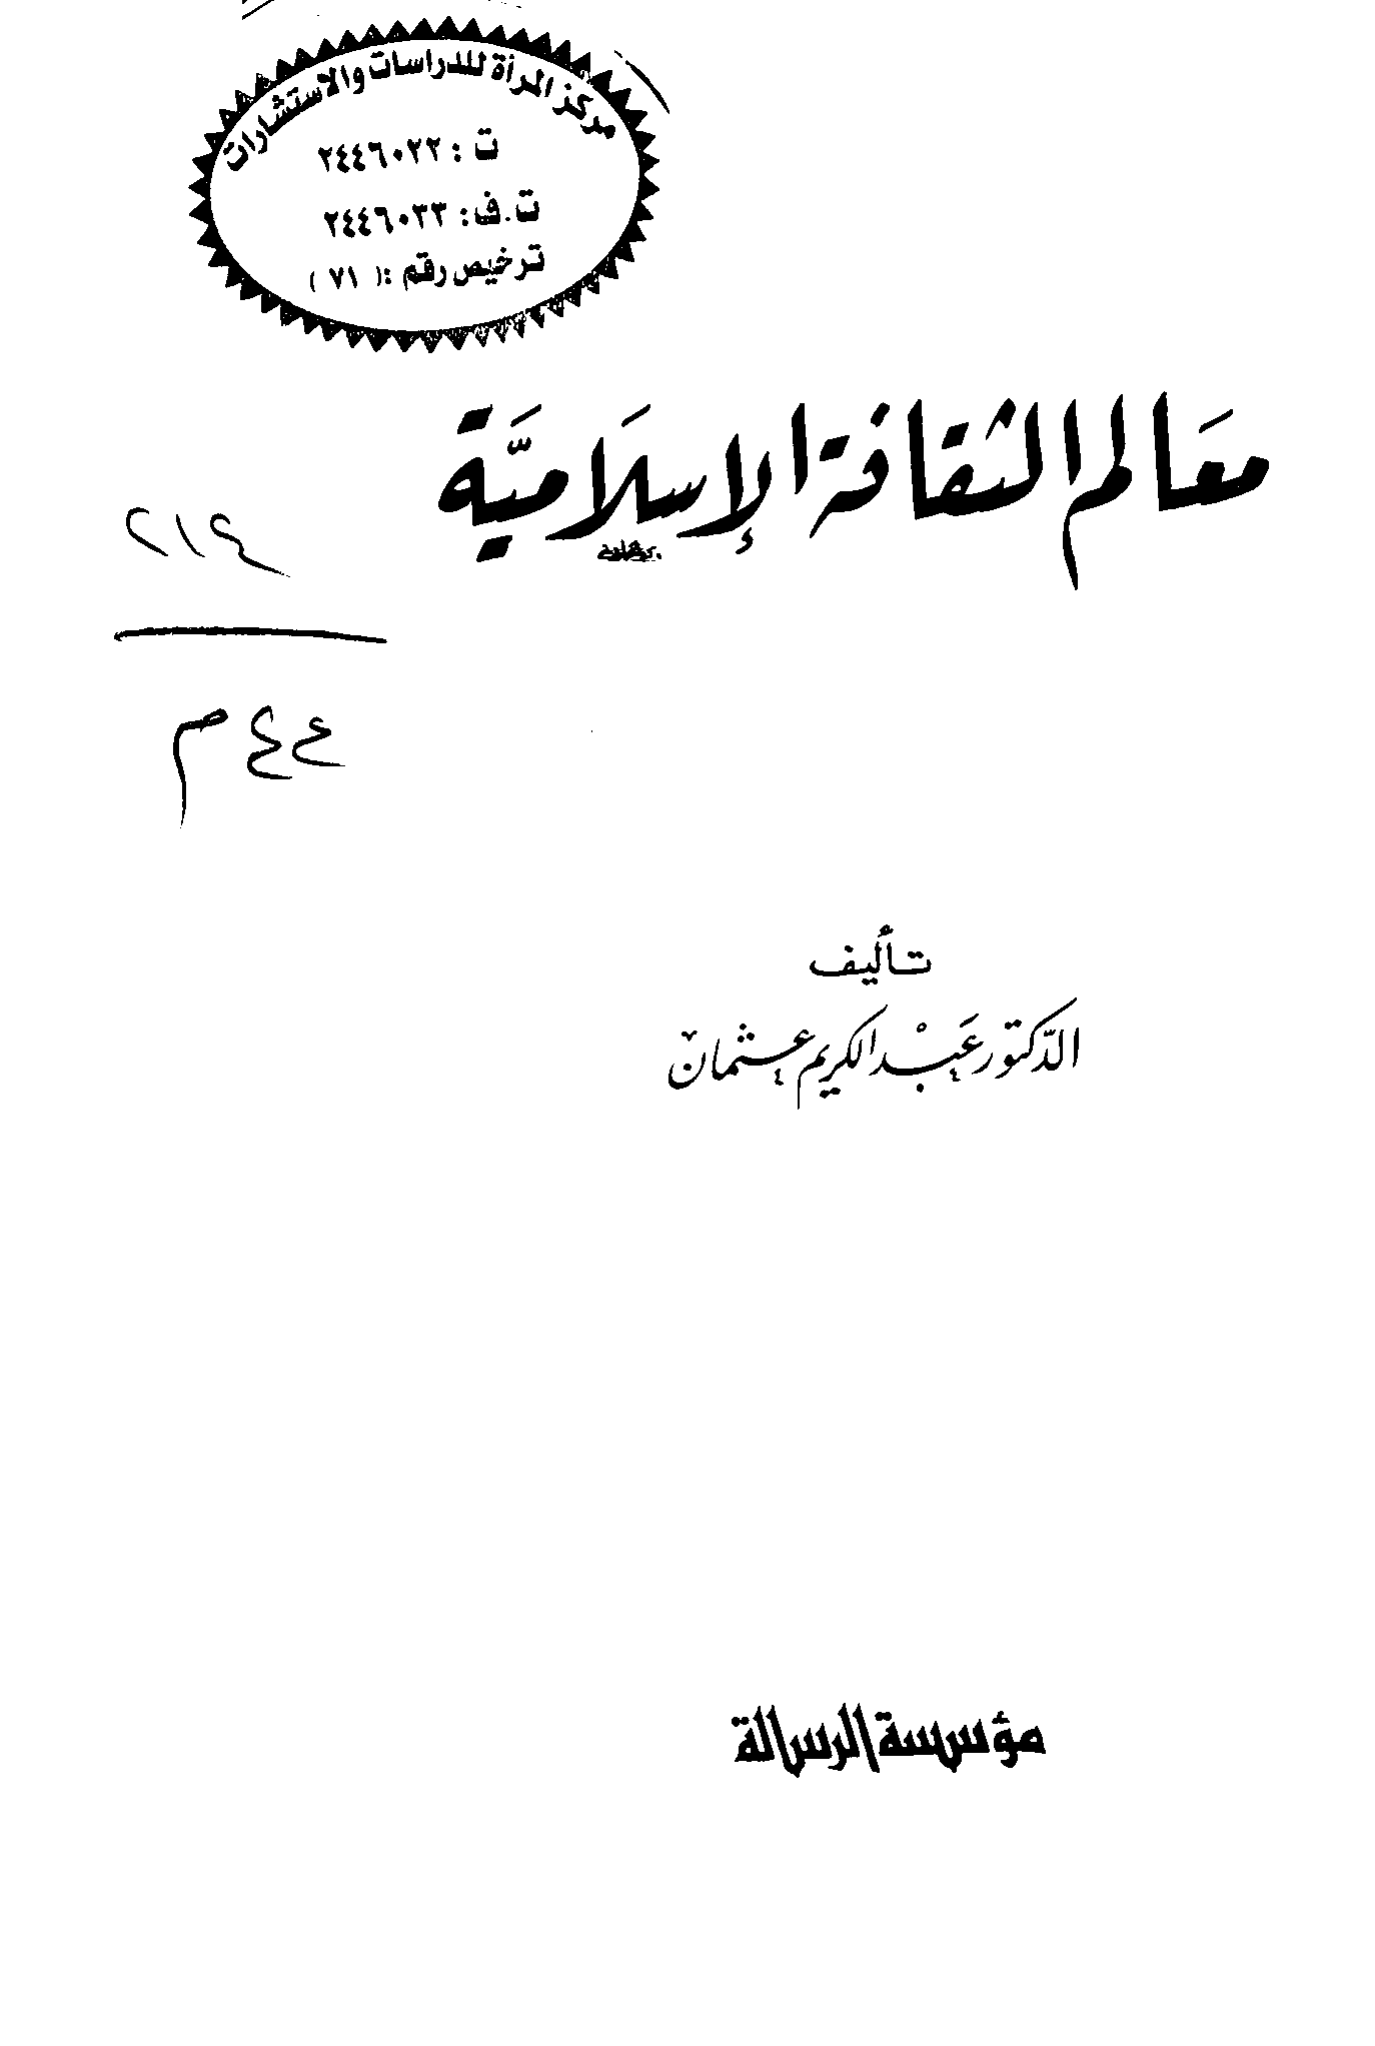 مركز المرأة للدراسات والاستشارات
ت : ٢٤٤٦٠٢٢
ت.ف: ٢٤٤٦٠٣٣
ترخيص رقم :( ٧١ )
معالم الثقافة الإسلاميّة
٢١٤
ع ٤ م
تأليف
الدّكتور عبْد الكريم عثمان
مؤسسة الرسالة